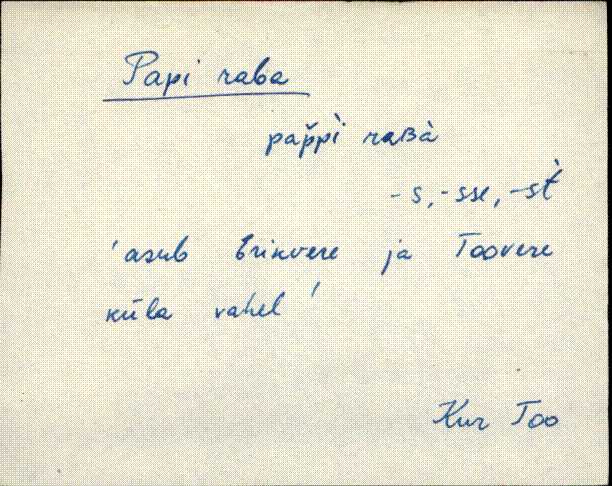 Papi raba
pap̆pì raʙà
-s, -sse, -st̀
'asub Erikvere ja Toovere
küla vahel'
Kur Too